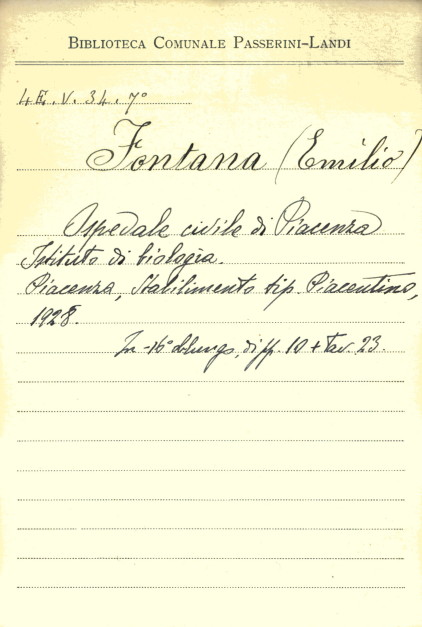 BIBLIOTECA COMUNALE PASSERINI-LANDI
4E.V.34.7°
Fontana (Emilio)
Ospedale civile di Piacenza
Istituto di biologia.
Piacenza, Stabilimento tip. Piacentino,
1928.
In-16° oblungo, di pp. 10 + Tav. 23.